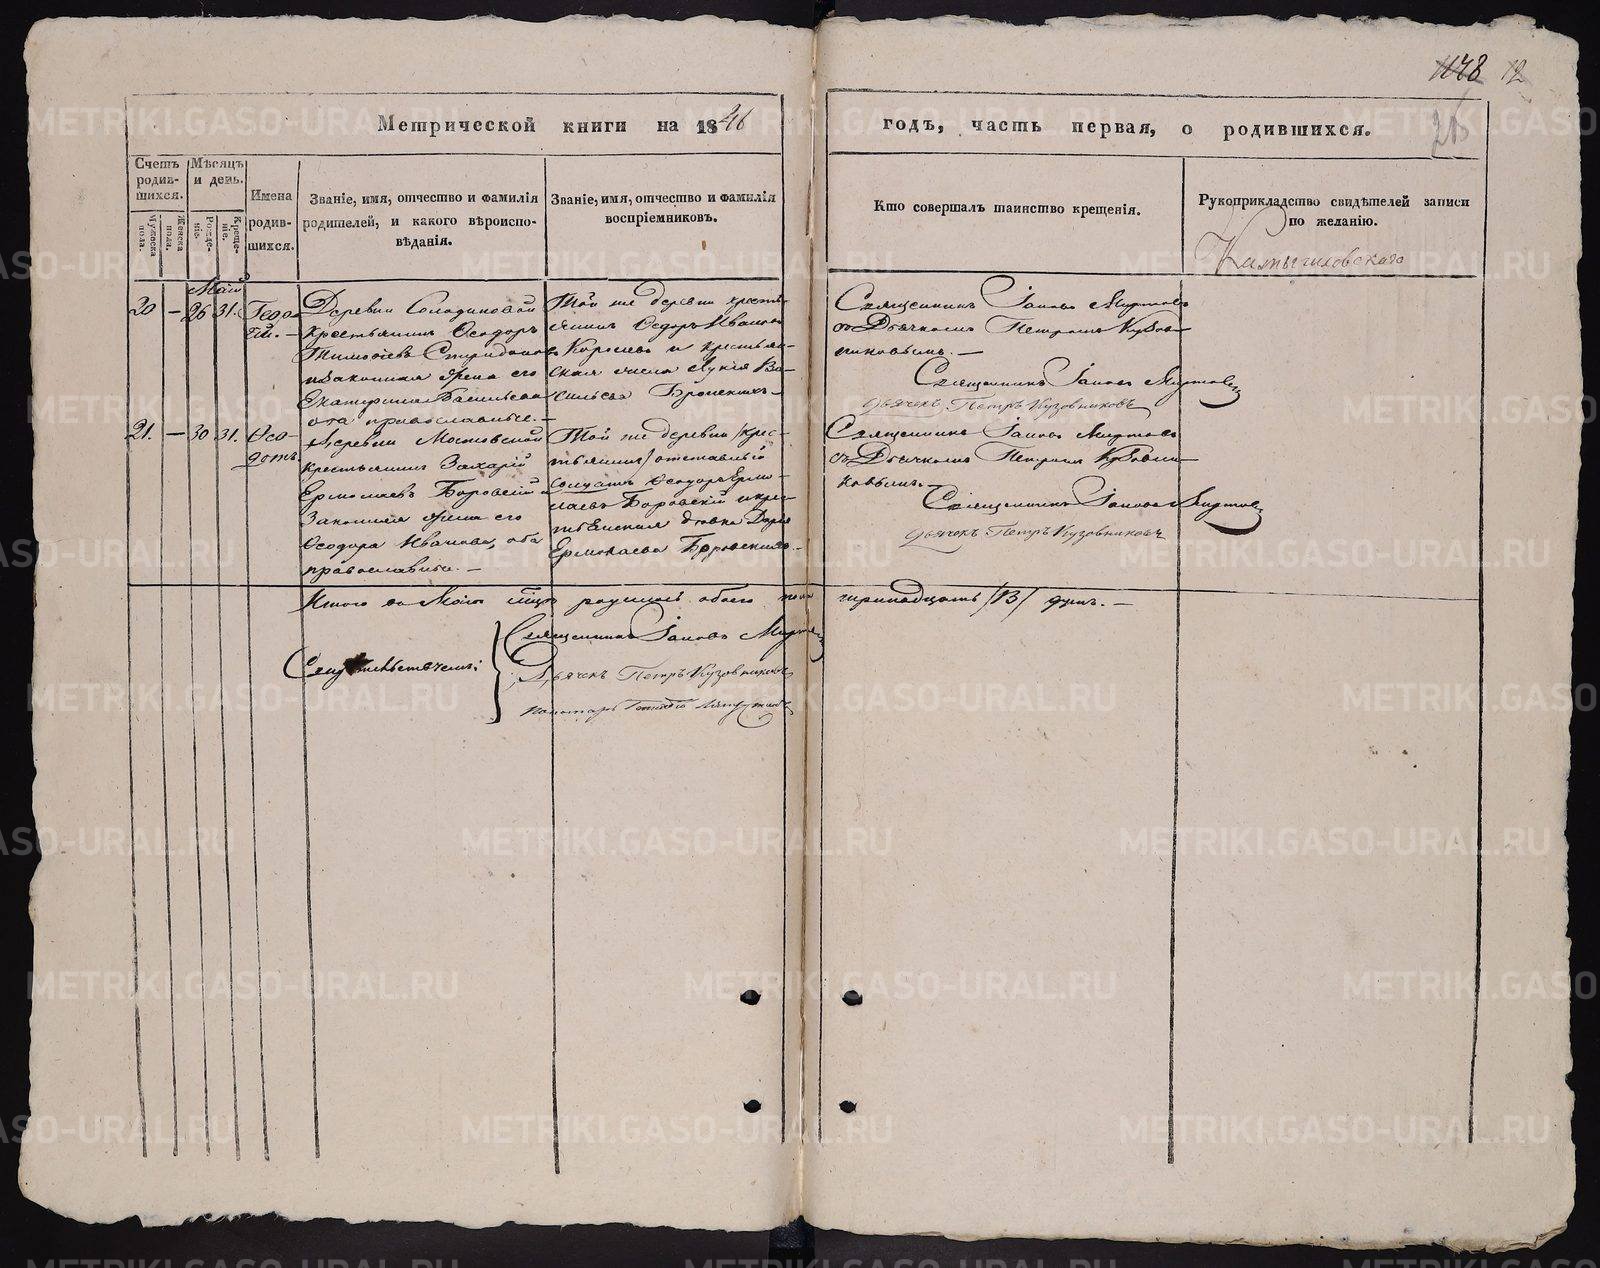 1178 12
26
Метрической книги на 1846
годъ, часть первая, о родившихся.
Счетъ родив-шихся.
Мужеска пола.
Женска пола.
Мѣсяцъ и день.
Рожде-ніе.
Креще-ніе.
Имена родив-шихся.
Званіе, имя, отчество и фамилія
родителей, и какого вѣроиспо-
вѣданія.
Званіе, имя, отчество и фамилія
воспріемниковъ.
Кто совершалъ таинство крещенія.
Рукоприкладство свидѣтелей записи
по желанію.
Камышловскаго
Май
20 — 26 31. Геор-
гій. —
Деревни Солодиловой
крестьянинъ Ѳеодоръ
Тимоѳеевъ Спиридоновъ
и законная жена его
Екатерина Васильева
оба православные. —
Той же деревни кресть-
янинъ Ѳедоръ Ивановъ
Королевъ и крестьян-
ская жена Лукія Ва-
сильева Бронскихъ. —
Священникъ Іаковъ Миртовъ
съ Дьячкомъ Петромъ Кузов-
никовымъ. —
Священникъ Іаковъ Миртовъ
дьячекъ Петръ Кузовниковъ
21. — 30 31. Ѳео-
дотъ.
Деревни Московской
крестьянинъ Захарій
Ермолаевъ Боровскій и
Законная жена его
Ѳеодора Иванова, оба
православные. —
Той же деревни /крес-
тьянинъ/ отставный
солдатъ Ѳеодоръ Ермо-
лаевъ Боровскій и крес-
тьянская дѣвка Дарья
Ермолаева Боровскихъ. —
Священникъ Іаковъ Миртовъ
съ Дьячкомъ Петромъ Кузовни-
ковымъ. —
Священникъ Іаковъ Миртовъ
дьячекъ Петръ Кузовниковъ
Итого въ Маіѣ мѣсяцѣ родилось обоего пола тринадцать /13/ душъ. —
Свидѣтельствуемъ:
Священникъ Іаковъ Миртовъ
Дьячекъ Петръ Кузовниковъ
Пономарь
METRIKI.GASO-URAL.RU